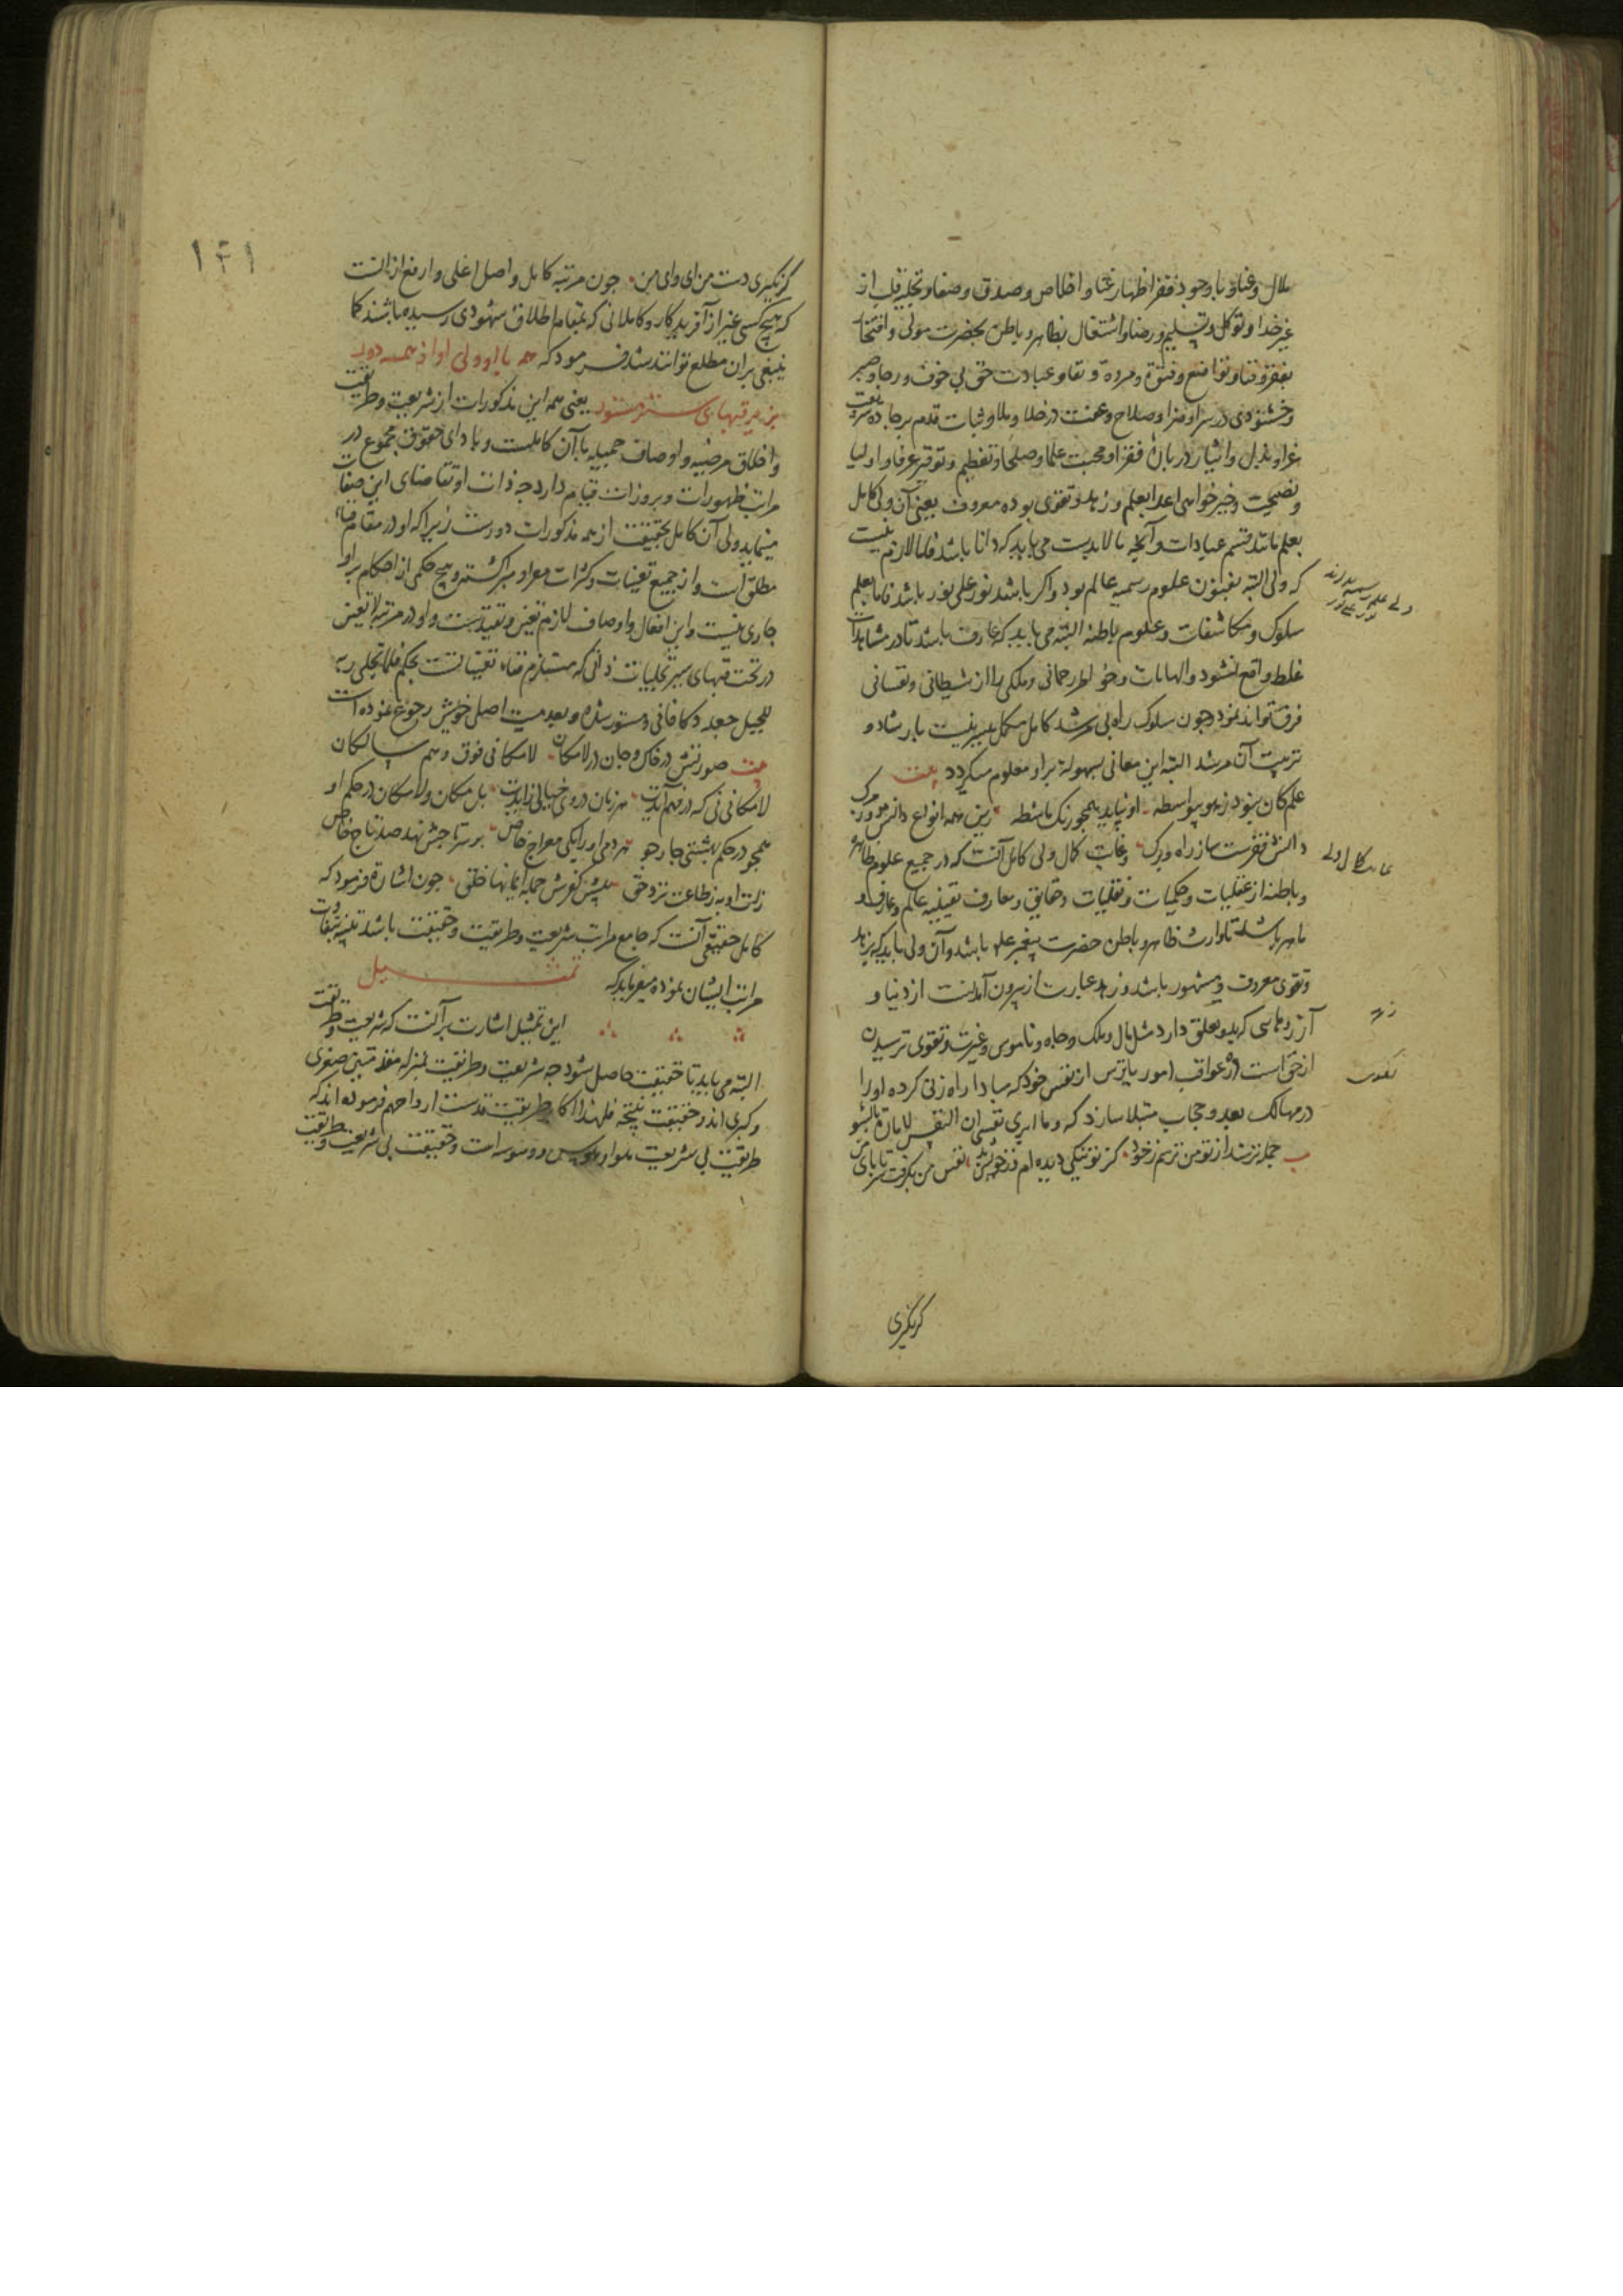 ملال و غنا و با وجود فقر اظهار غنا و اخلاص و صدق و صفا و تخلیه قلب از
غیر خدا و توکل و تسلیم و رضا و اشتغال بظاهر و باطن بحضرت مولی و افتخار
بفقر و فنا و تواضع و فتوة و مروة و تقا و عبادت حق بی خوف و رجا و صبر
و خشنودی در سرا و ضرا و صلاح و عفت در خلا و ملا و ثبات قدم بر جاده شریعت
غرا و بذل و ایثار در باره فقرا و محبت علما و صلحا و تعظیم و توقیر عرفا و اولیا
و نصیحت و خیر خواهی اعدا بعلم و زهد و تقوی بوده معروف یعنی آن ولی کامل
بعلم مانند قسم عبادات و آنچه ما لابدست می باید که دانا باشد فاما لازم نیست
که ولی البته بفنون علوم رسمیه عالم بود و اکر باشد نور علی نور باشد فاما بعلم
سلوک و مکاشفات و علوم باطنه البته می باید که عارف باشد تا در مشاهدات
غلط واقع نشود و الهامات و خواطر رحمانی و ملکی را از شیطانی و نفسانی
فرق تواند نمود و چون سلوک راه بی مرشد کامل مکمل میسر نیست بارشاد و
تربیت آن مرشد البته این معانی بسهولة بر او معلوم میکردد بیت
علم کان نبود ز هو بیواسطه او نپاید همچو رنک ماشطه زین همه انواع دانش روز مرک
دانش فقرست ساز راه و برک و غایت کمال ولی کامل آنست که در جمیع علوم ظاهره
و باطنه از عقلیات و حکمیات و نقلیات و حقایق و معارف یقینیه عالم و عارف و
ماهر باشد تا وارث ظاهر و باطن حضرت پیغمبر علم باشد و آن ولی باید که بزهد
و تقوی معروف و مشهور باشد و زهد عبارت از بیرون آمدنست از دنیا و
آرزوهایی که بدو تعلق دارد مثل مال و ملک و جاه و ناموس و غیرت و تقوی ترسیدن
از حق است از عواقب امور یا ترس از نفس خود که مبادا راه زنی کرده او را
در مهالک بعد و حجاب مبتلا سازد که و ما ابری نفسی ان النفس لامارة بالسو
جمله ترسند از تو من ترسم ز خود کز تو نیکی دیده ام وز خویش بد نفس من بکرفت سر تا پای من
کر نکیری
زهد
تقوی
۱۴۱
کر نکیری دست من ای وای من چون مرتبه کامل و اصل اعلی و ارفع از آنست
که هیچ کسی غیر از آفریدکار و کاملانی که بمقام اطلاق شهودی رسیده باشند کما
ینبغی بران مطلع توانند شد فرمود که همه با او ولی او از همه دور
بزیر قبهای ستر مستور یعنی همه این مذکورات از شریعت و طریقت
و اخلاق مرضیه و اوصاف جمیله با آن کاملست و با دای حقوق مجموع در
مراتب ظهورات و بروزات قیام دارد چه ذات او تقاضای این صفات
مینماید ولی آن کامل بحقیقت از همه مذکورات دورست زیرا که او در مقام فناء
مطلق است و از جمیع تعینات و کثرات معرا و مبرا کشته و هیچ حکمی از احکام بر او
جاری نیست و این افعال و اوصاف لازم تعین و تقیدست و او در مرتبه لا تعین
در تحت قبهای ستر تجلیات ذاتی که مستلزم فناء تعیناتست بحکم فلما تجلی ربه
للجبل جعله دکا فانی و مستور شده و بعدمیت اصلی خویش رجوع نموده است
بیت صورتش در خاک و جان در لامکان لامکانی فوق وهم سالکان
لامکانی نی که در فهم آیدت هر زمان در وی خیالی زایدت بل مکان و لامکان در حکم او
همچو در حکم بهشتی چار جو هر دمی او را یکی معراج خاص بر سر تاجش نهد صد تاج خاص
زلت او به ز طاعت نزد حق پیش کفرش جمله ایمانها خلق چون اشارة فرمود که
کامل حقیقی آنست که جامع مراتب شریعت و طریقت و حقیقت باشد تنبیه بتفاوت
مراتب ایشان نموده میفرماید که تمثیل
این تمثیل اشارت بر آنست که شریعت و طریقت
البته می باید تا حقیقت حاصل شود چه شریعت و طریقت بمنزله مقدمتین صغری
و کبری اند و حقیقت نتیجه فلهذا اکابر طریقت قدست ارواحهم فرموده اند که
طریقت بی شریعت هوا و هوس و وسوسه است و حقیقت بی شریعت و طریقت